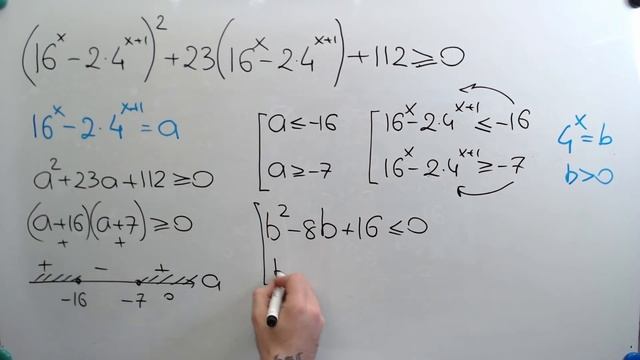 (16^x - 2·4^{x+1})^2 + 23(16^x - 2·4^{x+1}) + 112 ≥ 0
16^x - 2·4^{x+1} = a
a^2 + 23a + 112 ≥ 0
(a+16)(a+7) ≥ 0
+ +
+ - +
-16 -7 a
[ a ≤ -16
a ≥ -7
[ 16^x - 2·4^{x+1} ≤ -16
16^x - 2·4^{x+1} ≥ -7
4^x = b
b > 0
[ b^2 - 8b + 16 ≤ 0